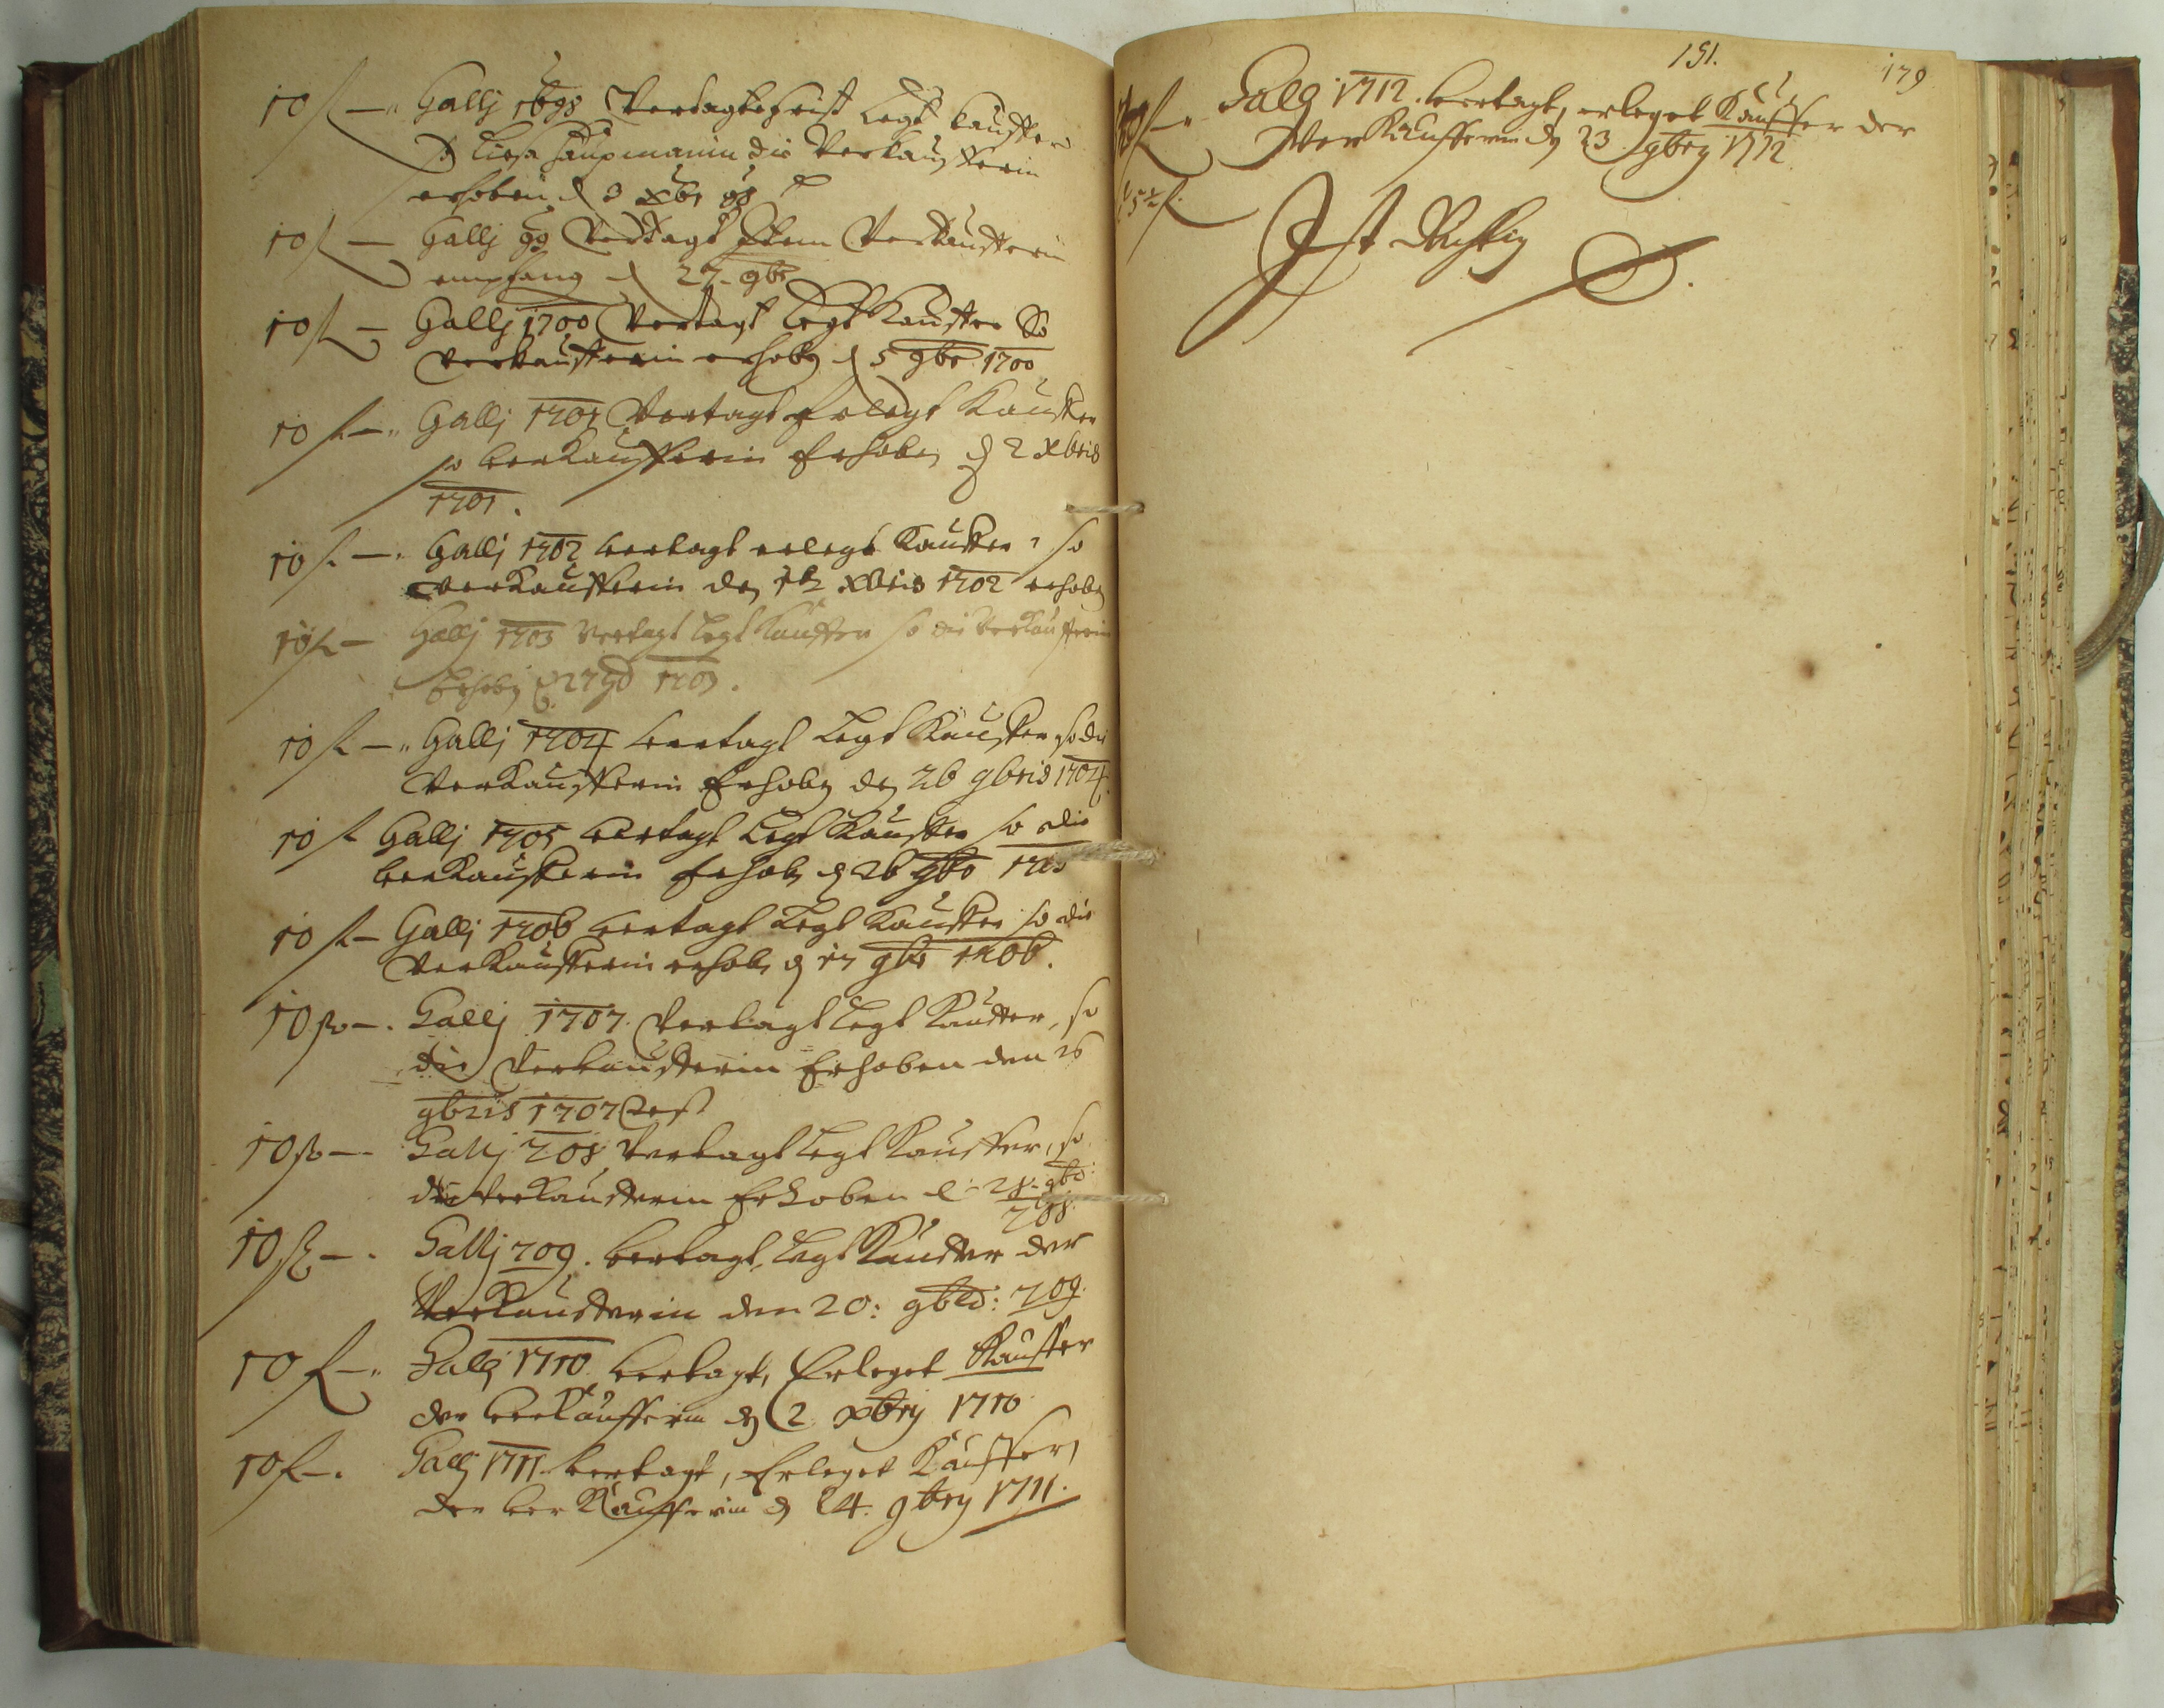 10 f — Gallj 1698 Vertagte frist Legt Kauffer
so Liesa Haupmanin die Verkaufferin
erhoben d 3 xbr 98
10 f — Gallj 99 Vertagt Verkaufferin
empfang d 27. 9br
10 f — Gallj 1700 Vertagt Legt Kauffer So
Verkaufferin erhobn d 5 9br 1700
10 f — Gallj 1701 Vertagt Erlegt Kauffer
so verkaufferin Erhoben d 2 Xbris
1701.
10 f — Gallj 1702 vertagt erlegt Kauffer so
Verkaufferin den xbris 1702 erhobn
10 f — Gallj 1703 Vertagt legt Kauffer so die Verkaufferin
Erhobn 1703.
10 f — Gallj 1704 vertagt Legt Kauffer so die
Verkaufferin Erhobn den 26 9bris 1704.
10 f Gallj 1705 vertagt Legt Kauffer so die
verkaufferin Erhobn d 26 9br 1705
10 f — Gallj 1706 vertagt Legt Kauffer so die
Verkaufferin erhobn d 17 9br 1706.
10 f —. Gallj 1707. Vertagt legt Kauffer, so
die Verkaufferin Erhoben den 26
9bris 1707
10 f — Gallj 708 Vertagt legt Kauffer, so
die Verkaufferin Erhoben d 9br
708.
10 f —. Gallj 709. vertagt, legt Kauffer der
Verkaufferin den 20: 9br: 709.
10 f — Gallj 1710 vertagt, Erleget Kauffer
der verkaufferin d 2 xbrj 1710
10 f —. Gallj 1711. vertagt, Erleget Kauffer,
der verKaufferin d 24. 9brj 1711.
151.
179
Gallj 1712. vertagt, erleget Kauffer der
VerKaufferin dn 23 9brj 1712.
Ist Richtig